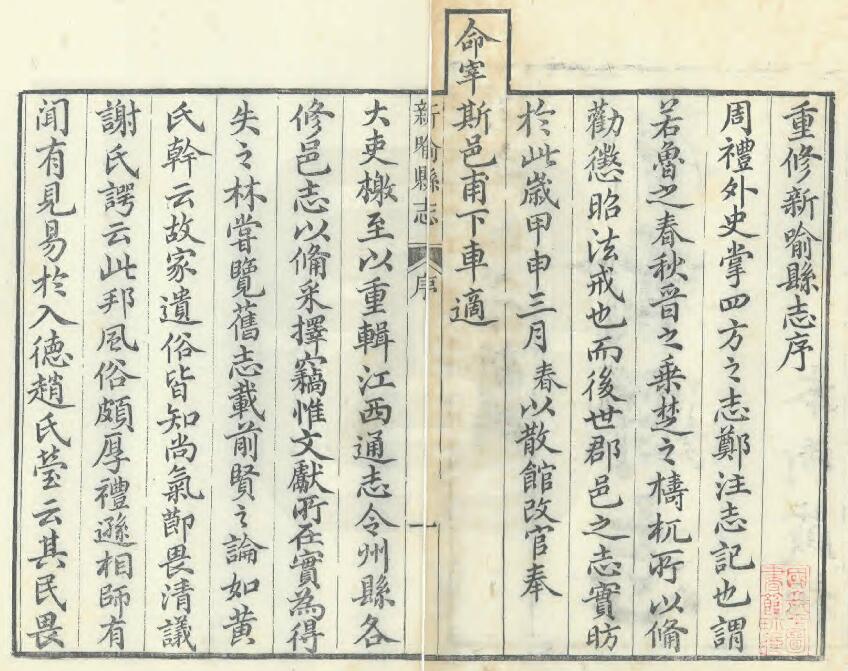 重修新喻縣志序
周禮外史掌四方之志鄭注志記也謂
若魯之春秋晉之乘楚之檮杌所以備
勸懲昭法戒也而後世郡邑之志實昉
於此歲甲申三月春以散館改官奉
命宰斯邑甫下車適
新喻縣志 序 一
大吏檄至以重輯江西通志令州縣各
修邑志以備采擇竊惟文獻所在實為得
失之林嘗覽舊志載前賢之論如黃
氏幹云故家遺俗皆知尚氣節畏清議
謝氏諤云此邦風俗頗厚禮遜相師有
聞有見易於入德趙氏瑩云其民畏